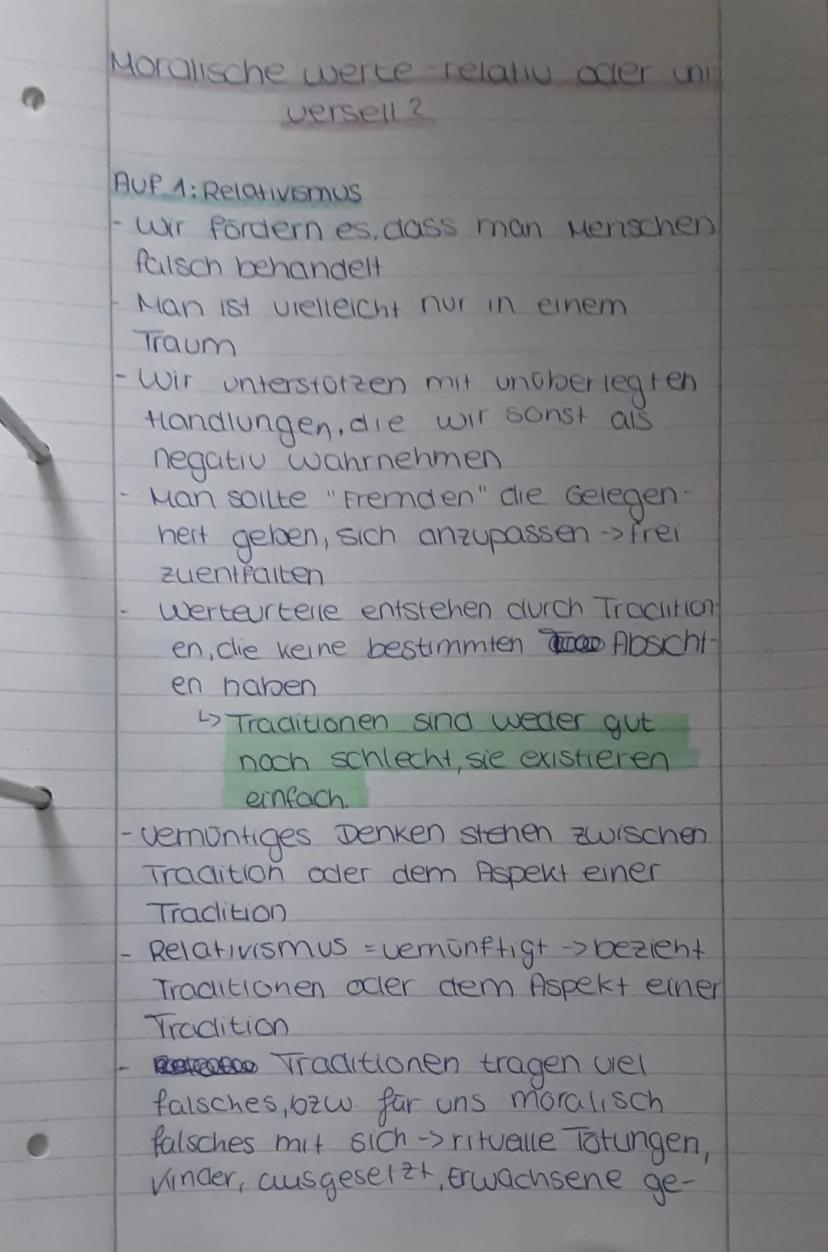 Moralische Werte - relativ oder uni
versell?
Auf 1: Relativismus
- Wir fördern es, dass man Menschen
falsch behandelt
- Man ist vielleicht nur in einem
Traum
- Wir unterstützen mit unüberlegten
Handlungen, die wir sonst als
negativ wahrnehmen
- Man sollte "Fremden" die Gelegen-
heit geben, sich anzupassen -> frei
zuentfalten
- Werteurteile entstehen durch Tradition
en, die keine bestimmten Absicht-
en haben
↳ Traditionen sind weder gut
noch schlecht, sie existieren
einfach.
- vernüntiges Denken stehen zwischen
Tradition oder dem Aspekt einer
Tradition
- Relativismus = vernünftigt -> bezieht
Traditionen oder dem Aspekt einer
Tradition
- Traditionen tragen viel
falsches, bzw. für uns moralisch
falsches mit sich -> rituelle Tötungen,
Kinder, ausgesetzt, Erwachsene ge-